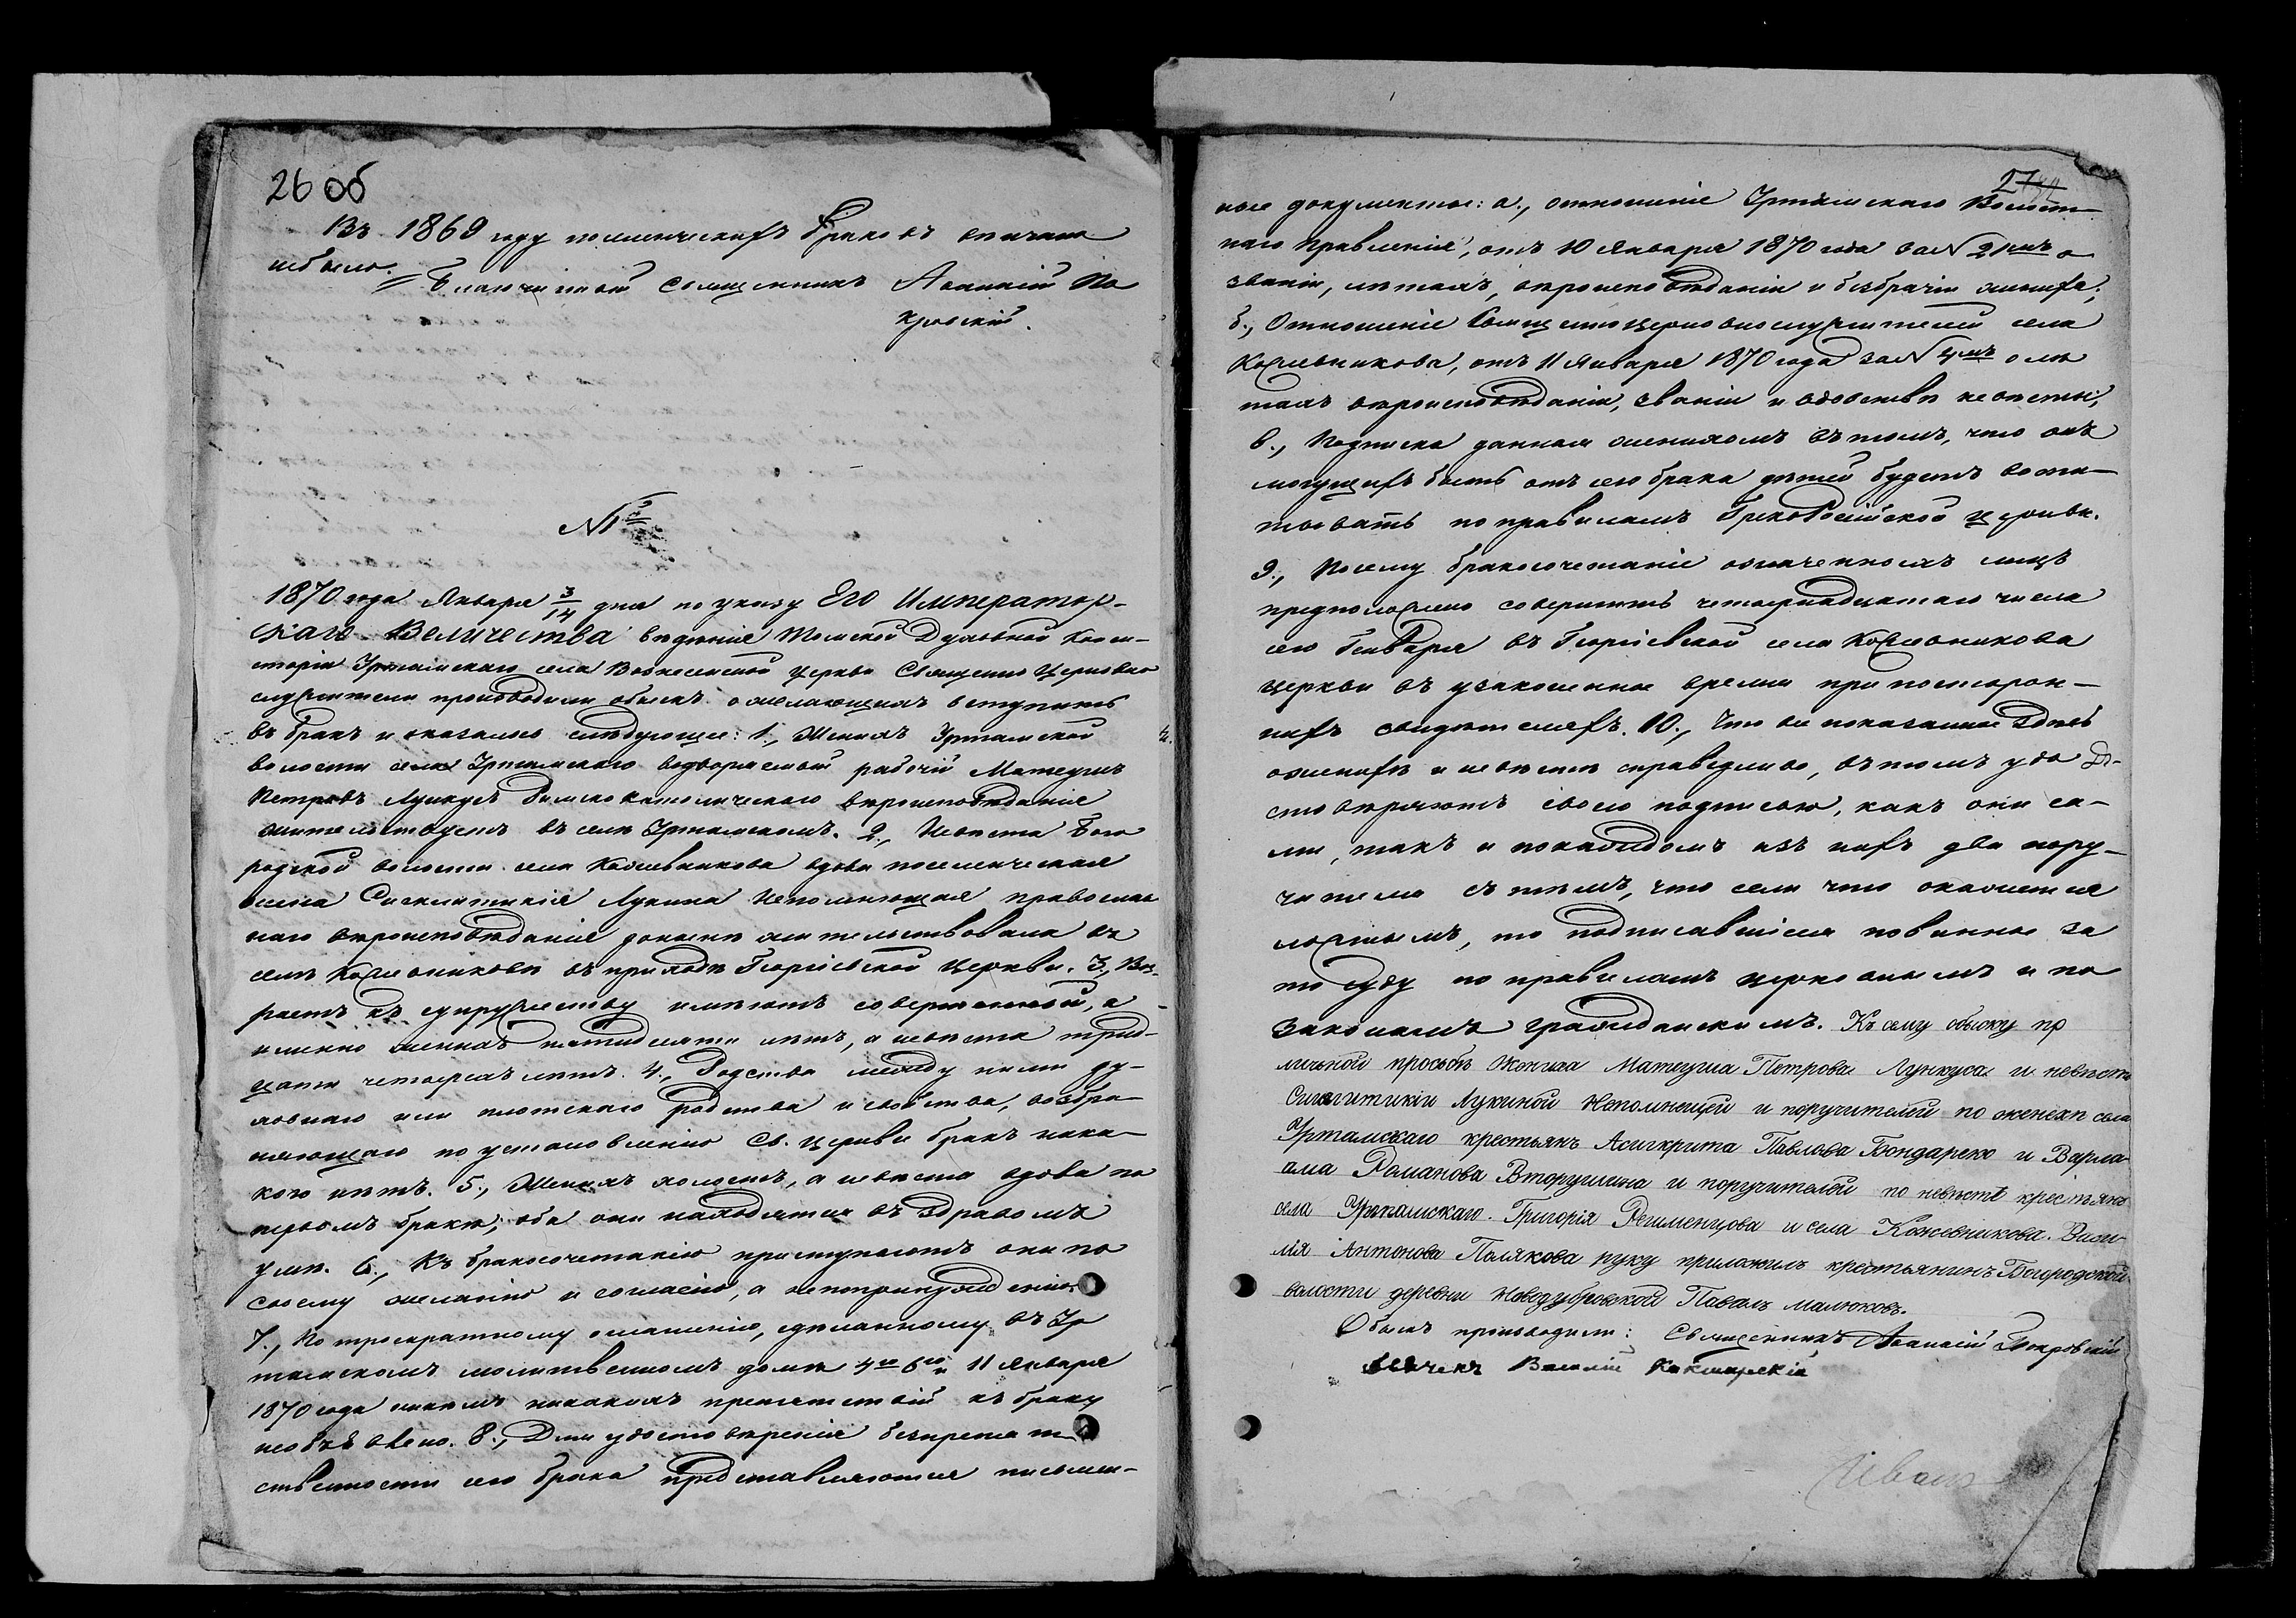 26 об
Въ 1869 году поселенческихъ браковъ вписано
небыло.
Благочинный Священникъ Ананій По
кровскій.
№ 1й
1870 года Января 3/14 дня по указу Его Император-
скаго Величества вѣдѣнія Томской Духовной Конси-
сторіи Уртамскаго села Вознесенской церкви Священно Церковно
служители производили обыскъ о желающихъ вступить
въ бракъ и оказалось слѣдующее: 1., Женихъ Уртамской
волости села Уртамскаго водворяемый рабочій Матеушъ
Петровъ Лункусъ Римскокатолическаго вѣроисповѣданія
жительствуетъ въ селѣ Уртамскомъ. 2., Невѣста Бого
родской волости села Кожевникова вдова поселенческая
жена Синклитикія Лукина Непомнющая православ
наго вѣроисповѣданія донынѣ жительствовала въ
селѣ Кожевниковѣ въ приходѣ Георгіевской Церкви. 3., Воз-
растъ къ супружеству имѣютъ совершенной, а
именно женихъ пятидесяти лѣтъ, а невѣста трид-
цати четырехъ лѣтъ. 4., Родства между ними ду-
ховнаго или плотскаго родства и свойства, возбра-
няющаго по установленію Св. церкви бракъ ника-
кого нѣтъ. 5., Женихъ холостъ, а невѣста вдова по
первомъ бракѣ; оба они находятся въ здравомъ
умѣ. 6., Къ бракосочетанію приступаютъ они по
своему желанію и согласію, а не по принужденію.
7., По троекратному оглашенію, сдѣланному въ Ур
тамскомъ молитвенномъ домѣ 4го 6го и 11 Января
1870 года никѣмъ никакихъ препятствій къ браку
необъявлено. 8., Для удостовѣренія безпрепят
ственности сего брака представляются письмен-
27
ные документы: а., отношеніе Уртамскаго Волост-
наго Правленія, отъ 10 Января 1870 года за № 21мъ о
званіи, лѣтахъ, вѣроисповѣданіи и безбрачіи жениха;
б., Отношеніе Священноцерковнослужителей села
Кожевникова, отъ 11 Января 1870 года за № 4мъ о лѣ
тахъ вѣроисповѣданіи, званіи и вдовствѣ невѣсты;
в., Подписка данная женихомъ въ томъ, что онъ
могущихъ быть отъ сего брака дѣтей будетъ воспи-
тывать по правиламъ Грекороссійской церкви.
9., Посему бракосочетаніе означенныхъ лицъ
предположено совершить четырнадцатаго числа
сего Генваря въ Георгіевской села Кожевникова
церкви въ узаконенное время при посторон-
нихъ свидѣтеляхъ. 10., Что все показанное здѣсь
о женихѣ и невѣстѣ справедливо, въ томъ удо
стовѣряютъ своею подписью, какъ они са-
ми, такъ и по каждомъ изъ нихъ два пору-
чителя съ тѣмъ, что если что окажется
ложнымъ, то подписавшіеся повинны за
то суду по правиламъ церковнымъ и по
законамъ гражданскимъ. Къ сему обыску по
личной просьбѣ Жениха Матеуша Петрова Лункуса и невѣсты
Синклитикіи Лукиной Непомнющей и поручителей по женихѣ села
Уртамскаго крестьянъ Асигкрита Павлова Бондаренко и Варла
ама Романова Вторушина и поручителей по невѣстѣ крестьянъ
села Уртамскаго. Григорія Рецменцова и села Кожевникова. Васи-
лія Антонова Полякова руку приложилъ крестьянинъ Богородской
волости деревни Новодубровской Павелъ Малюковъ.
Обыскъ производили: Священникъ Ананій Покровскій
Василій
Иванъ